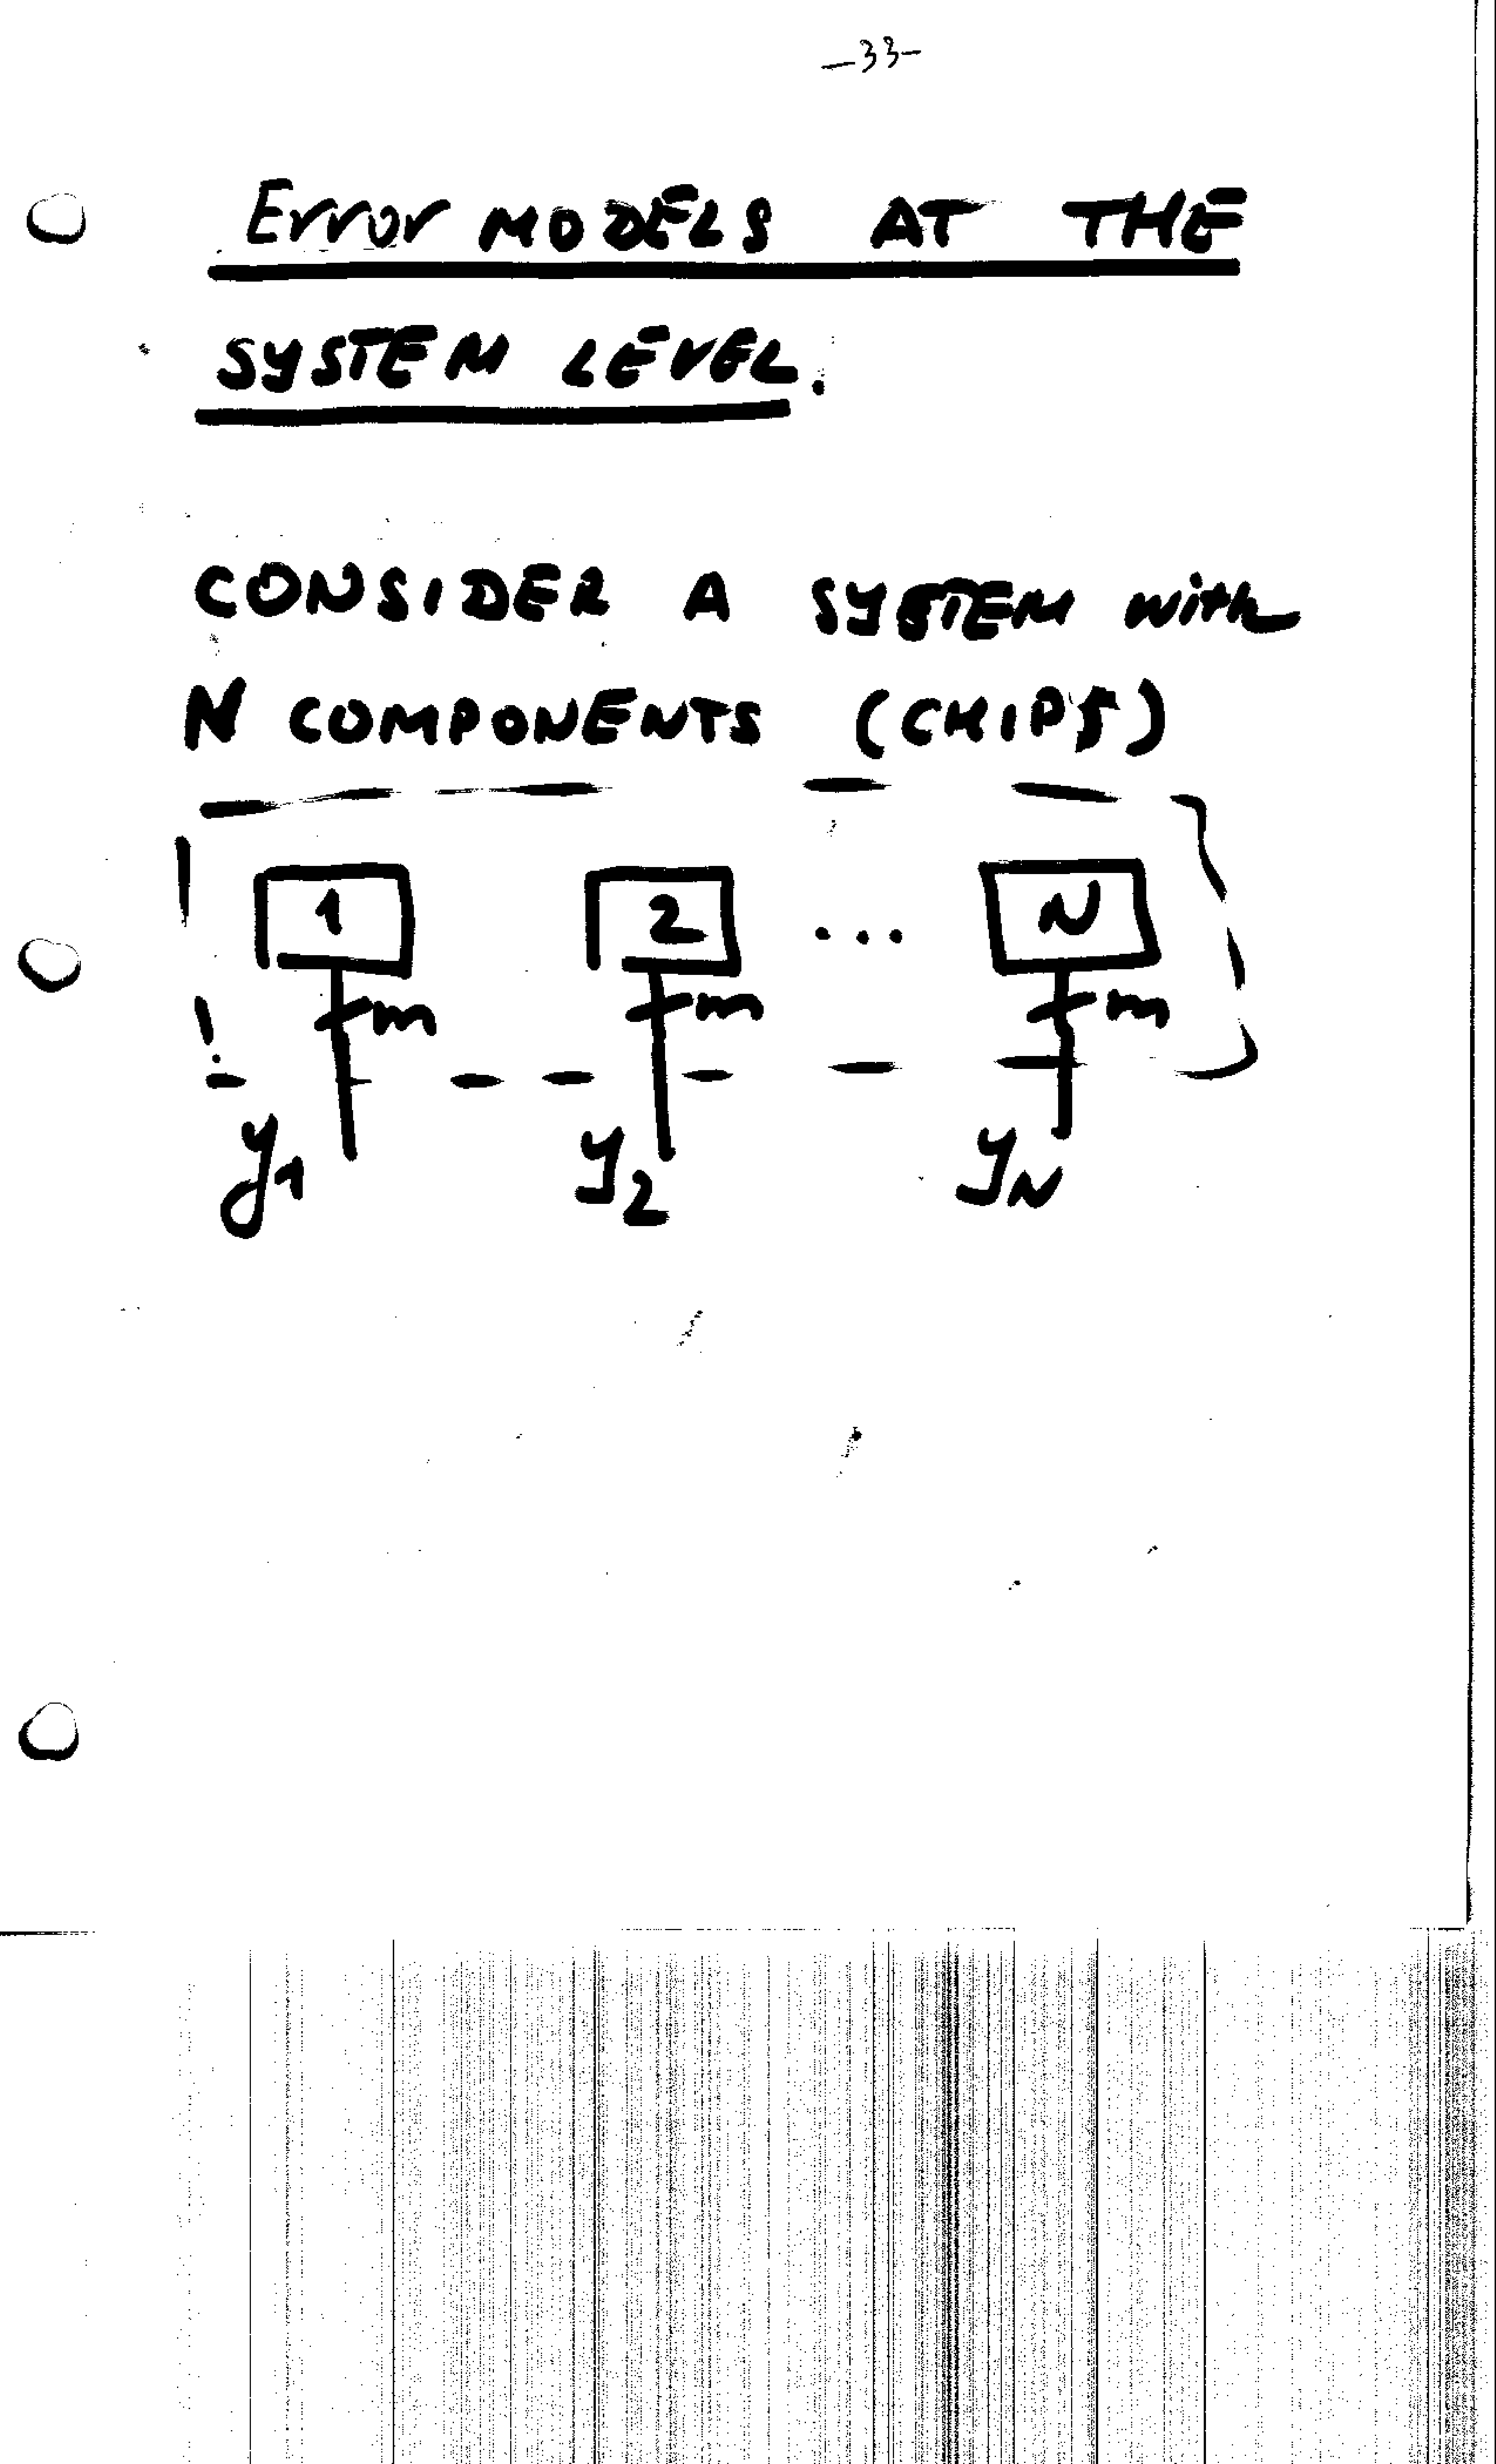 -33-
Error MODELS AT THE
SYSTEM LEVEL.
CONSIDER A SYSTEM with
N COMPONENTS (CHIPS)
1 2 ... N
m m m
y1 y2 yN